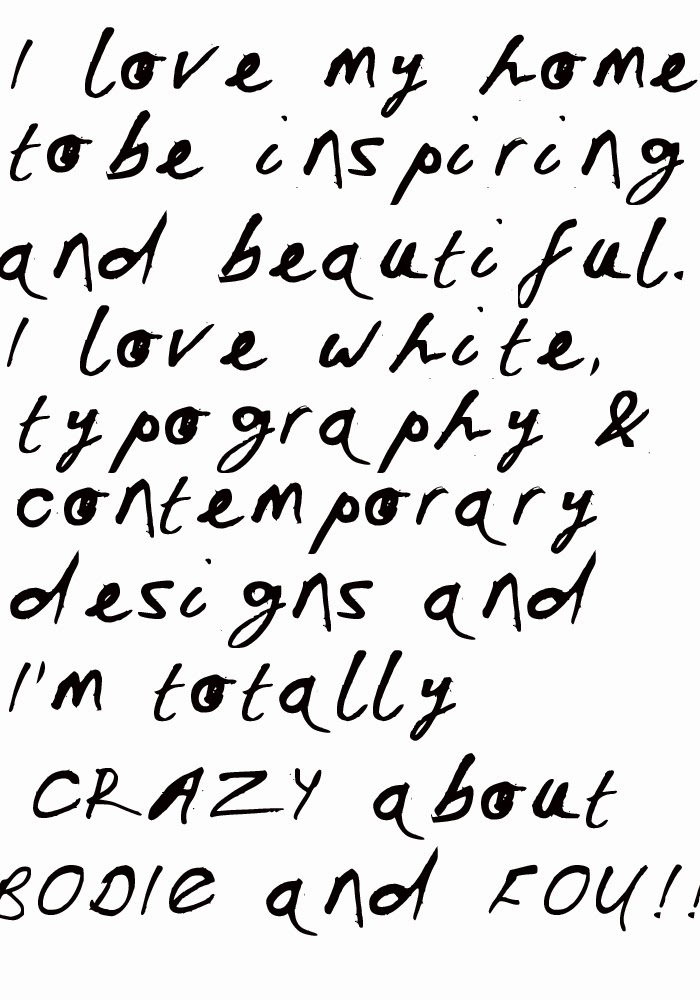 I love my home
to be inspiring
and beautiful.
I love white,
typography &
contemporary
designs and
I'm totally
CRAZY about
BODIE and FOU!!